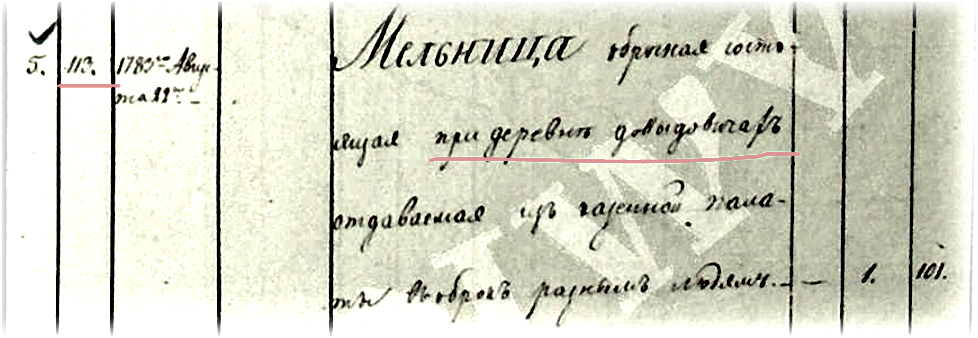 5. 113. 1783го Авгус- Мельница оброчная состо-
та 22го
ящая при деревнѣ довыдовичахъ
отдаваемая изъ казенной пала-
ты въ оброкъ разнымъ людямъ. — 1. 101.